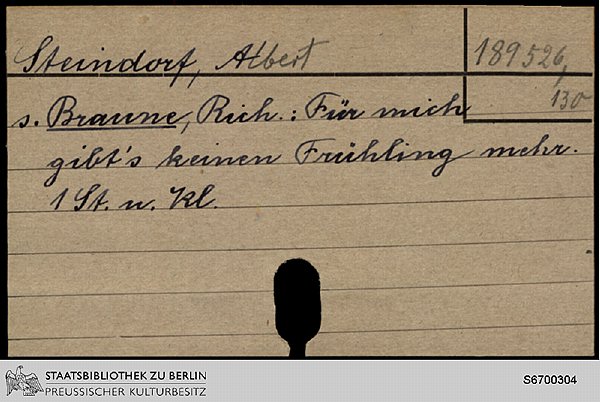 Steindorf, Albert
189526,
130
s. Braune, Rich.: Für mich
gibt's keinen Frühling mehr.
1 St. u. Kl.
STAATSBIBLIOTHEK ZU BERLIN
PREUSSISCHER KULTURBESITZ
S6700304